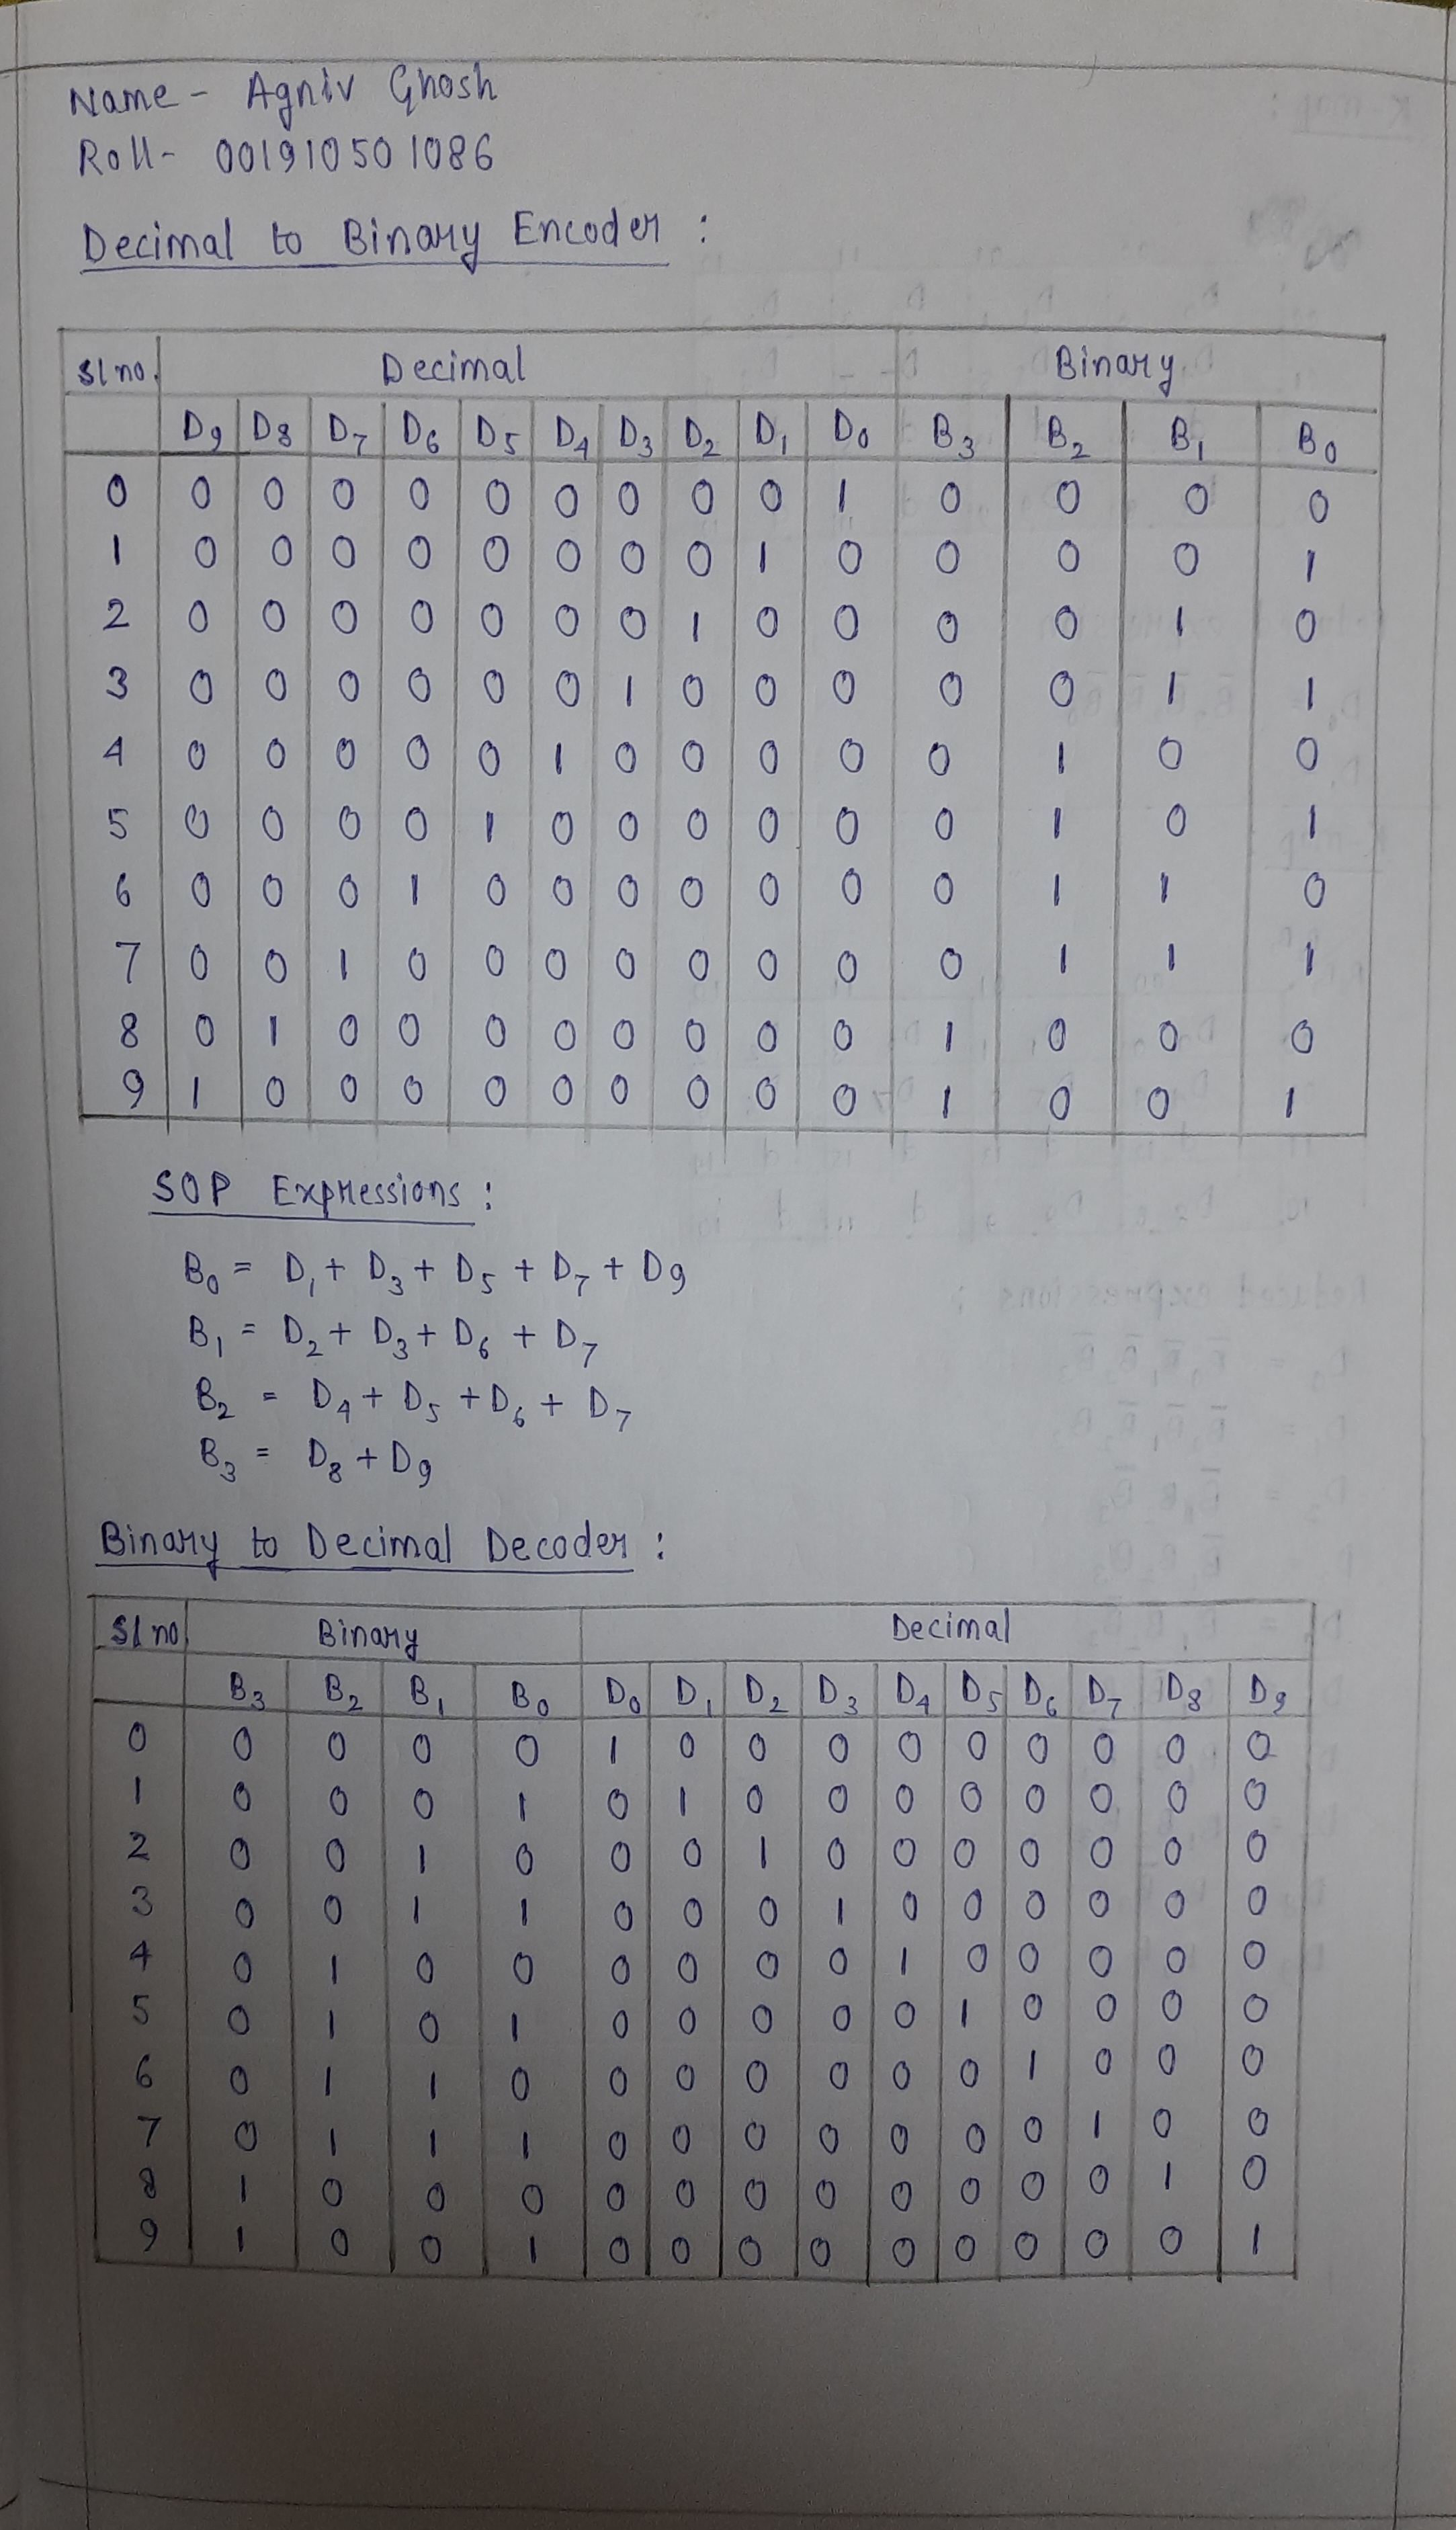 Name - Agniv Ghosh
Roll - 001910501086
Decimal to Binary Encoder :
Sl no. Decimal Binary
D9 D8 D7 D6 D5 D4 D3 D2 D1 D0 B3 B2 B1 B0
0 0 0 0 0 0 0 0 0 0 1 0 0 0 0
1 0 0 0 0 0 0 0 0 1 0 0 0 0 1
2 0 0 0 0 0 0 0 1 0 0 0 0 1 0
3 0 0 0 0 0 0 1 0 0 0 0 0 1 1
4 0 0 0 0 0 1 0 0 0 0 0 1 0 0
5 0 0 0 0 1 0 0 0 0 0 0 1 0 1
6 0 0 0 1 0 0 0 0 0 0 0 1 1 0
7 0 0 1 0 0 0 0 0 0 0 0 1 1 1
8 0 1 0 0 0 0 0 0 0 0 1 0 0 0
9 1 0 0 0 0 0 0 0 0 0 1 0 0 1
SOP Expressions :
B0 = D1 + D3 + D5 + D7 + D9
B1 = D2 + D3 + D6 + D7
B2 = D4 + D5 + D6 + D7
B3 = D8 + D9
Binary to Decimal Decoder :
Sl no Binary Decimal
B3 B2 B1 B0 D0 D1 D2 D3 D4 D5 D6 D7 D8 D9
0 0 0 0 0 1 0 0 0 0 0 0 0 0 0
1 0 0 0 1 0 1 0 0 0 0 0 0 0 0
2 0 0 1 0 0 0 1 0 0 0 0 0 0 0
3 0 0 1 1 0 0 0 1 0 0 0 0 0 0
4 0 1 0 0 0 0 0 0 1 0 0 0 0 0
5 0 1 0 1 0 0 0 0 0 1 0 0 0 0
6 0 1 1 0 0 0 0 0 0 0 1 0 0 0
7 0 1 1 1 0 0 0 0 0 0 0 1 0 0
8 1 0 0 0 0 0 0 0 0 0 0 0 1 0
9 1 0 0 1 0 0 0 0 0 0 0 0 0 1